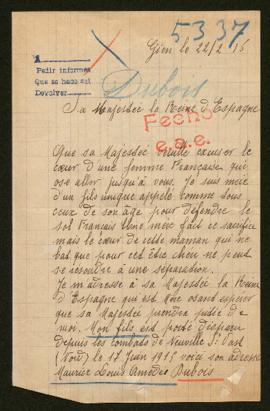 5337
Gien le 22/2 16
Pedir informes
Que se haga así
Devolver
Dubois
Sa Majestée la Reine d'Espagne
Fecho
e.a.e.
Que sa Majestée veuille excuser le
cœur d'une femme Française qui
ose aller jusqu'à vous. Je suis mère
d'un fils unique appelé comme tous
ceux de son âge pour défendre le
sol Français Une mère fait ce sacrifice
mais le cœur de cette maman qui ne
bat que pour cet être cher ne peut
se résoudre à une séparation.
Je m'adresse à sa Majestée la Reine
d'Espagne qui est mère osant espérer
que sa Majestée prendra pitié de
moi. Mon fils est porté disparu
depuis les combats de Neuville St Vast
(Nord) le 17 Juin 1915 voici son adresse
Maurice Louis Amédée Dubois